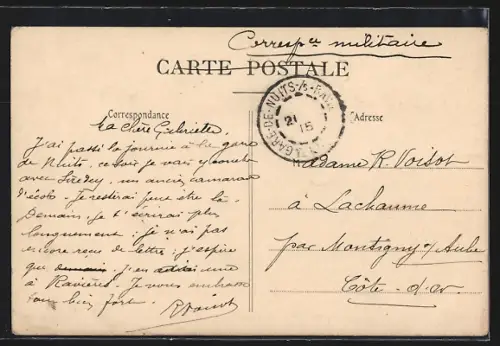 Corresp.ce militaire
CARTE POSTALE
Correspondance
Adresse
GARE-DE-NUITS-S/s-RAV
21
15
Ma chère Gabrielle,
J'ai passé la journée à la gare
de Nuits. Ce soir je vais y
avec un ancien camarade
d'école. Je resterai peut être là.
Demain je t'écrirai plus
longuement ; je n'ai pas
encore reçu de lettre ; j'espère
que demain j'en aurai une
à Ravières. Je vous embrasse
tous bien fort.
RVoisot
Madame R. Voisot
à Lachaume
par Montigny s/ Aube
Côte-d'or